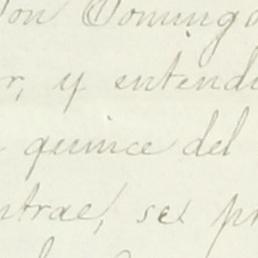 on Domingo
r, y entendi
quince del
ntrae, se